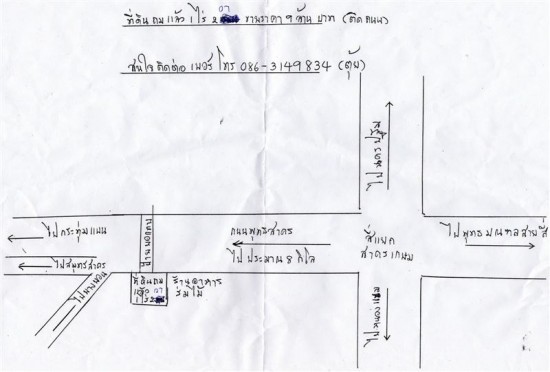 ที่ดิน ถม แล้ว 1 ไร่ 2 07 ขายราคา 9 ล้าน บาท (ติด ถนน)
สนใจ ติดต่อ เบอร์ โทร 086-3149834 (ตุ้ย)
ไป นครปฐม
ไป กระทุ่มแบน
ถนนพุทธสาคร
สี่แยก
สาครเกษม
ไป พุทธ มณฑล สาย สี่
ไปสมุทรสาคร
ไป ประมาณ 8 กิโล
ไปบางบอน
ที่ดินถม
แล้ว 07
1 ไร่ 2
ร้านอาหาร
ร่มไม้